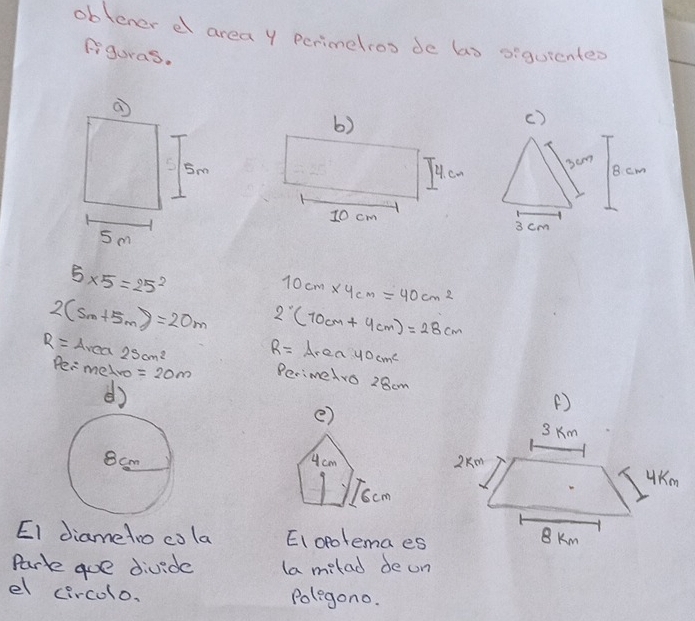 obtener el area y Perimetros de las siguientes
figuras.
a)
5m
5m
5×5=25²
2(5m+5m)=20m
R= Area 25cm²
Perimetro=20m
b)
4.cm
10 cm
10cm×4cm=40cm²
2(10cm+4cm)=28cm
R= Area 40cm²
Perimetro 28cm
c)
3cm
8.cm
3 cm
d)
8cm
El diametro es la
Parte que divide
el circulo.
e)
4cm
6cm
El apotema es
la mitad de un
Poligono.
f)
3 Km
2Km
4Km
8 Km